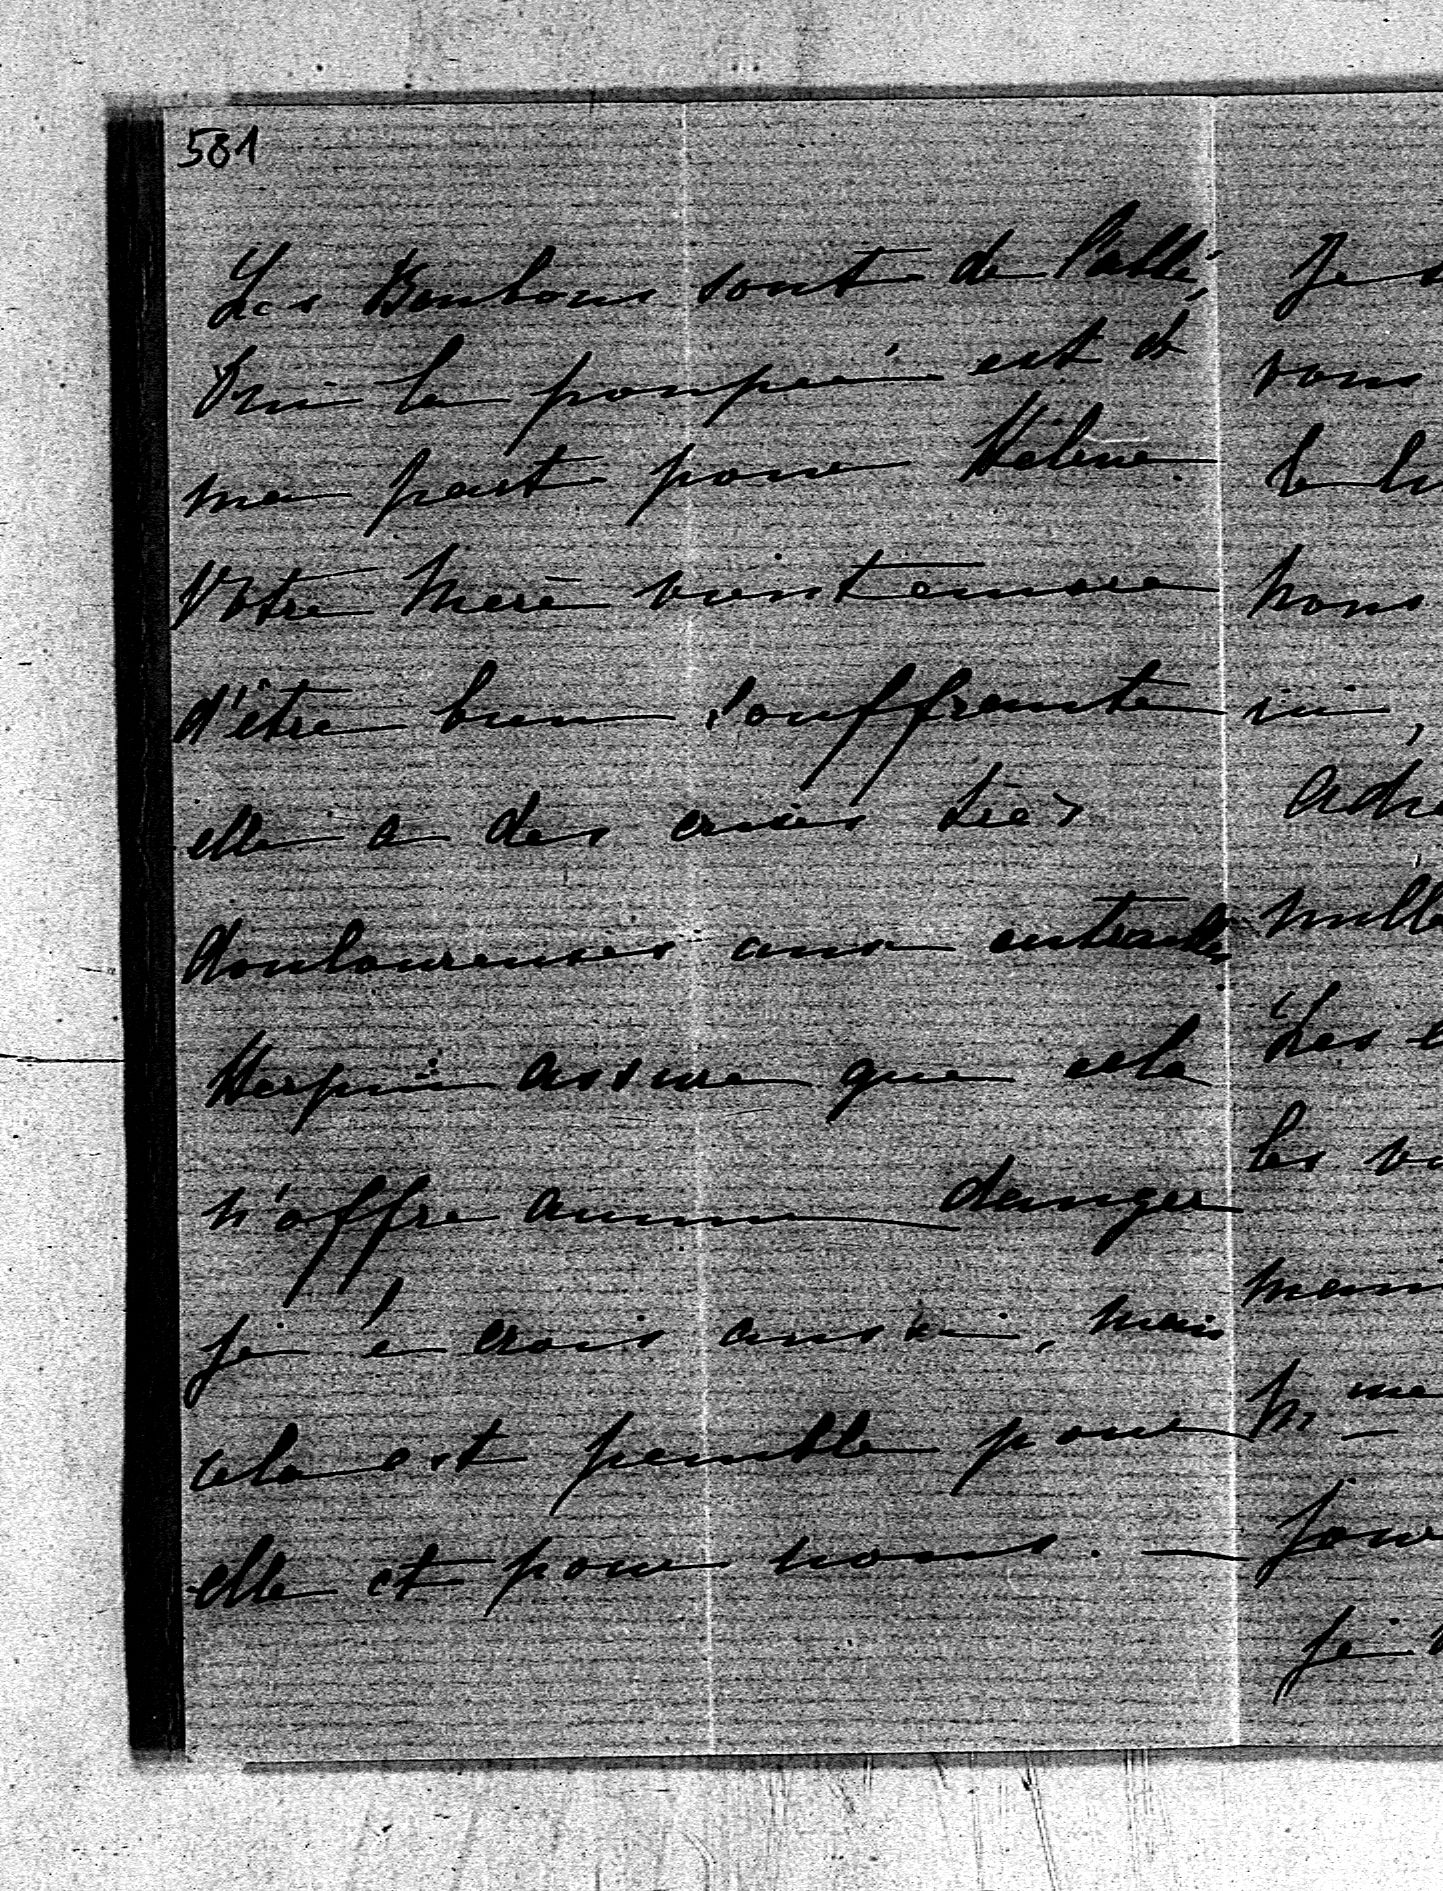 581
Les Bonbons sont de l'abbé,
la poupée est de
ma part pour Hélène
Votre Mère vient encore
d'être bien souffrante
elle a des crises très
douloureuses aux entrailles.
Herpin assure que cela
n'offre aucun danger
je le crois aussi, mais
cela est penible pour
elle et pour nous. —
Je
vous
le
nous
ici,
mille
Les
les
M me
jour
je